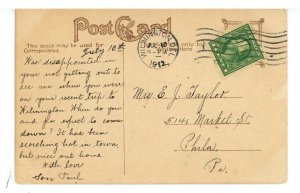 Post Card
This space may be used for
Correspondence
July 10th
Was disappointed in
your not getting out to
see me when you were
on your recent trip to
Wilmington. When do you
and fax expect to come
down? It has been
scorching hot in town,
but nice out home.
With love
Son Paul
JUL 10
1912
Mrs E. J. Taylor
5144 Market St.
Phila.
Pa.